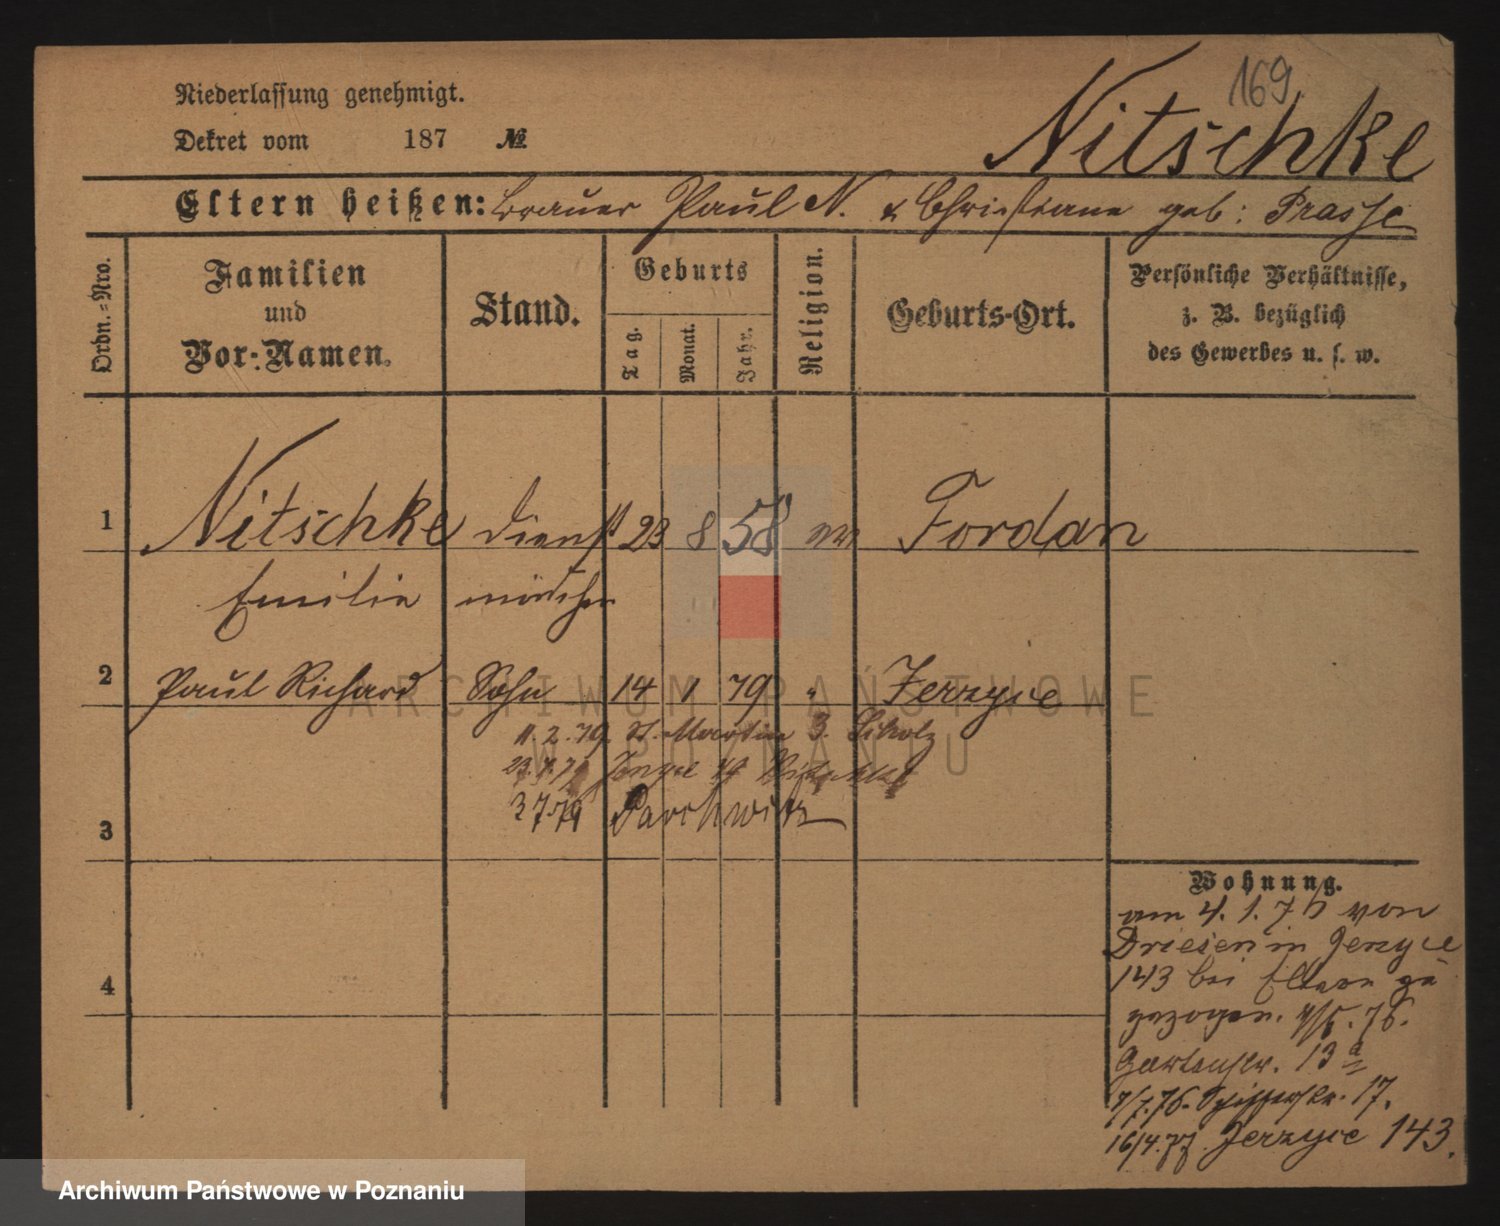 169
Niederlassung genehmigt.
Dekret vom 187 №
Nitschke
Eltern heißen: Brauer Paul N. & Christiane geb: Prasse
Ordn.=Nro.
Familien
und
Vor=Namen.
Stand.
Geburts
Tag.
Monat.
Jahr.
Religion.
Geburts-Ort.
Persönliche Verhältnisse,
z. B. bezüglich
des Gewerbes u. s. w.
1 Nitschke Dienst 23 8 58 ev Fordan
Emilie mädchen
2 Paul Richard Sohn 14 1 79 " Jerzyce
11.2.79. St. Martin 3.
23.7.79
3 7.79 Parchwitz
3
4
Wohnung.
am 4.1.76 von
Driesen in Jerzyce
143 bei Eltern zu
gezogen. 76.
Gartenstr. 13 a
7/7.76. Schifferstr. 17.
16/4.77. Jerzyce 143.
ARCHIWUM PAŃSTWOWE
W POZNANIU
Archiwum Państwowe w Poznaniu